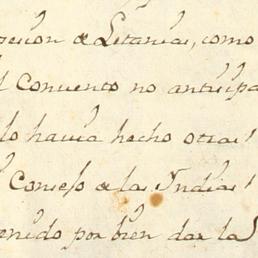 pesion de Letanias, como
el Convento no antiçipa
lo havia hecho otras
Consejo de las Indias
tenido por bien dar la